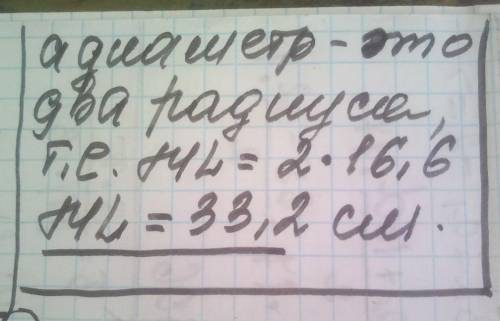 а диаметр - это
два радиуса,
т.е. ML = 2 · 16,6
ML = 33,2 см.